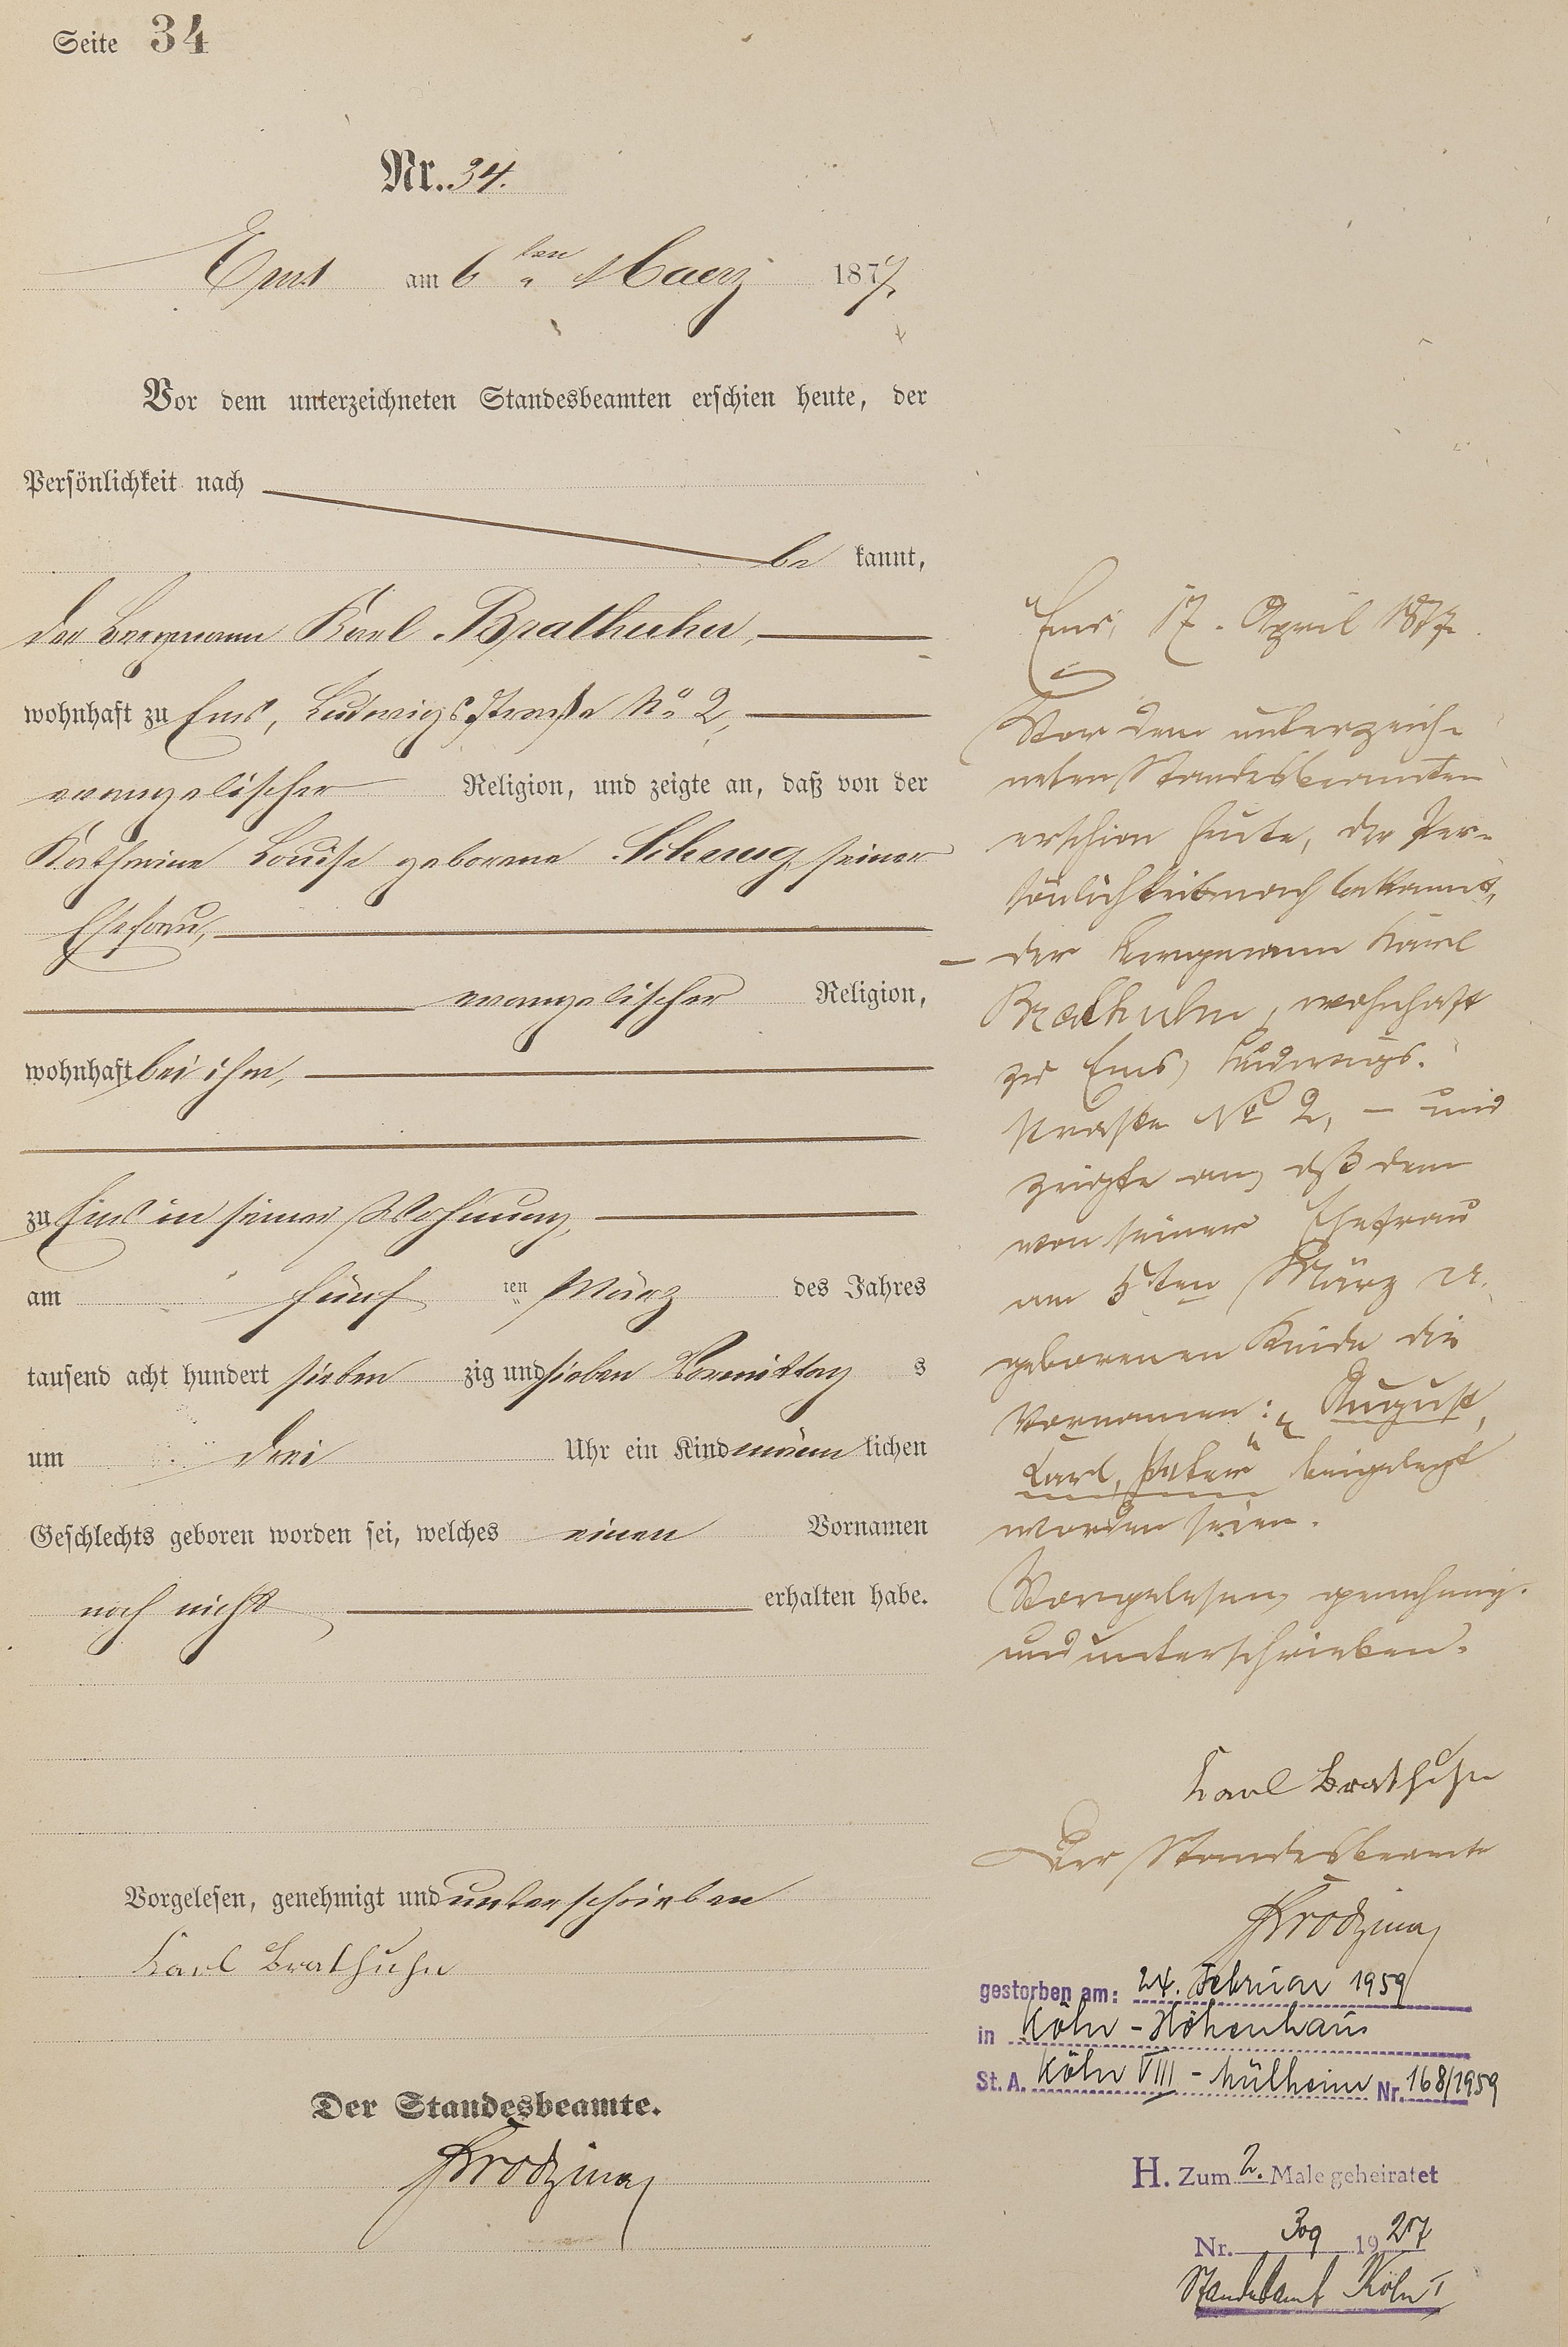 Seite 34
Nr. 34.
Ems am 6ten Maerz 1877.
Vor dem unterzeichneten Standesbeamten erschien heute, der
Persönlichkeit nach
be kannt,
der Bergmann Karl Brathuhn,
wohnhaft zu Ems, Ludwigsstraße No 2,
evangelischer Religion, und zeigte an, daß von der
Katharina Louise geborene Schaug, seiner
Ehefrau,
evangelischer Religion,
wohnhaft bei ihm,
zu Ems in seiner Wohnung,
am fünf ten März des Jahres
tausend acht hundert sieben zig und sieben Vormittag s
um drei Uhr ein Kind männ lichen
Geschlechts geboren worden sei, welches einen Vornamen
noch nicht erhalten habe.
Vorgelesen, genehmigt und unterschrieben
Karl Brathuhn
Der Standesbeamte.
Ems, 17. April 1877.
Vor dem unterzeich-
neten Standesbeamten
erschien heute, der Per-
sönlichkeit nach bekannt,
der Bergmann Karl
Brathuhn, wohnhaft
zu Ems, Ludwigs-
straße No 2, – und
zeigte an, dß dem
von seiner Ehefrau
am 5ten März
geborenen Kinde die
Vornamen: „August,
Karl, Peter“ beigelegt
worden seien.
Vorgelesen, genehmig.
und unterschrieben.
Karl Brathuhn
Der Standesbeamte
gestorben am: 24. Februar 1959
in Köln-Höhenhaus
St. A. Köln VIII - Mülheim Nr. 168/1959
H. Zum 2. Male geheiratet
Nr. 309 1927
Standesamt Köln I